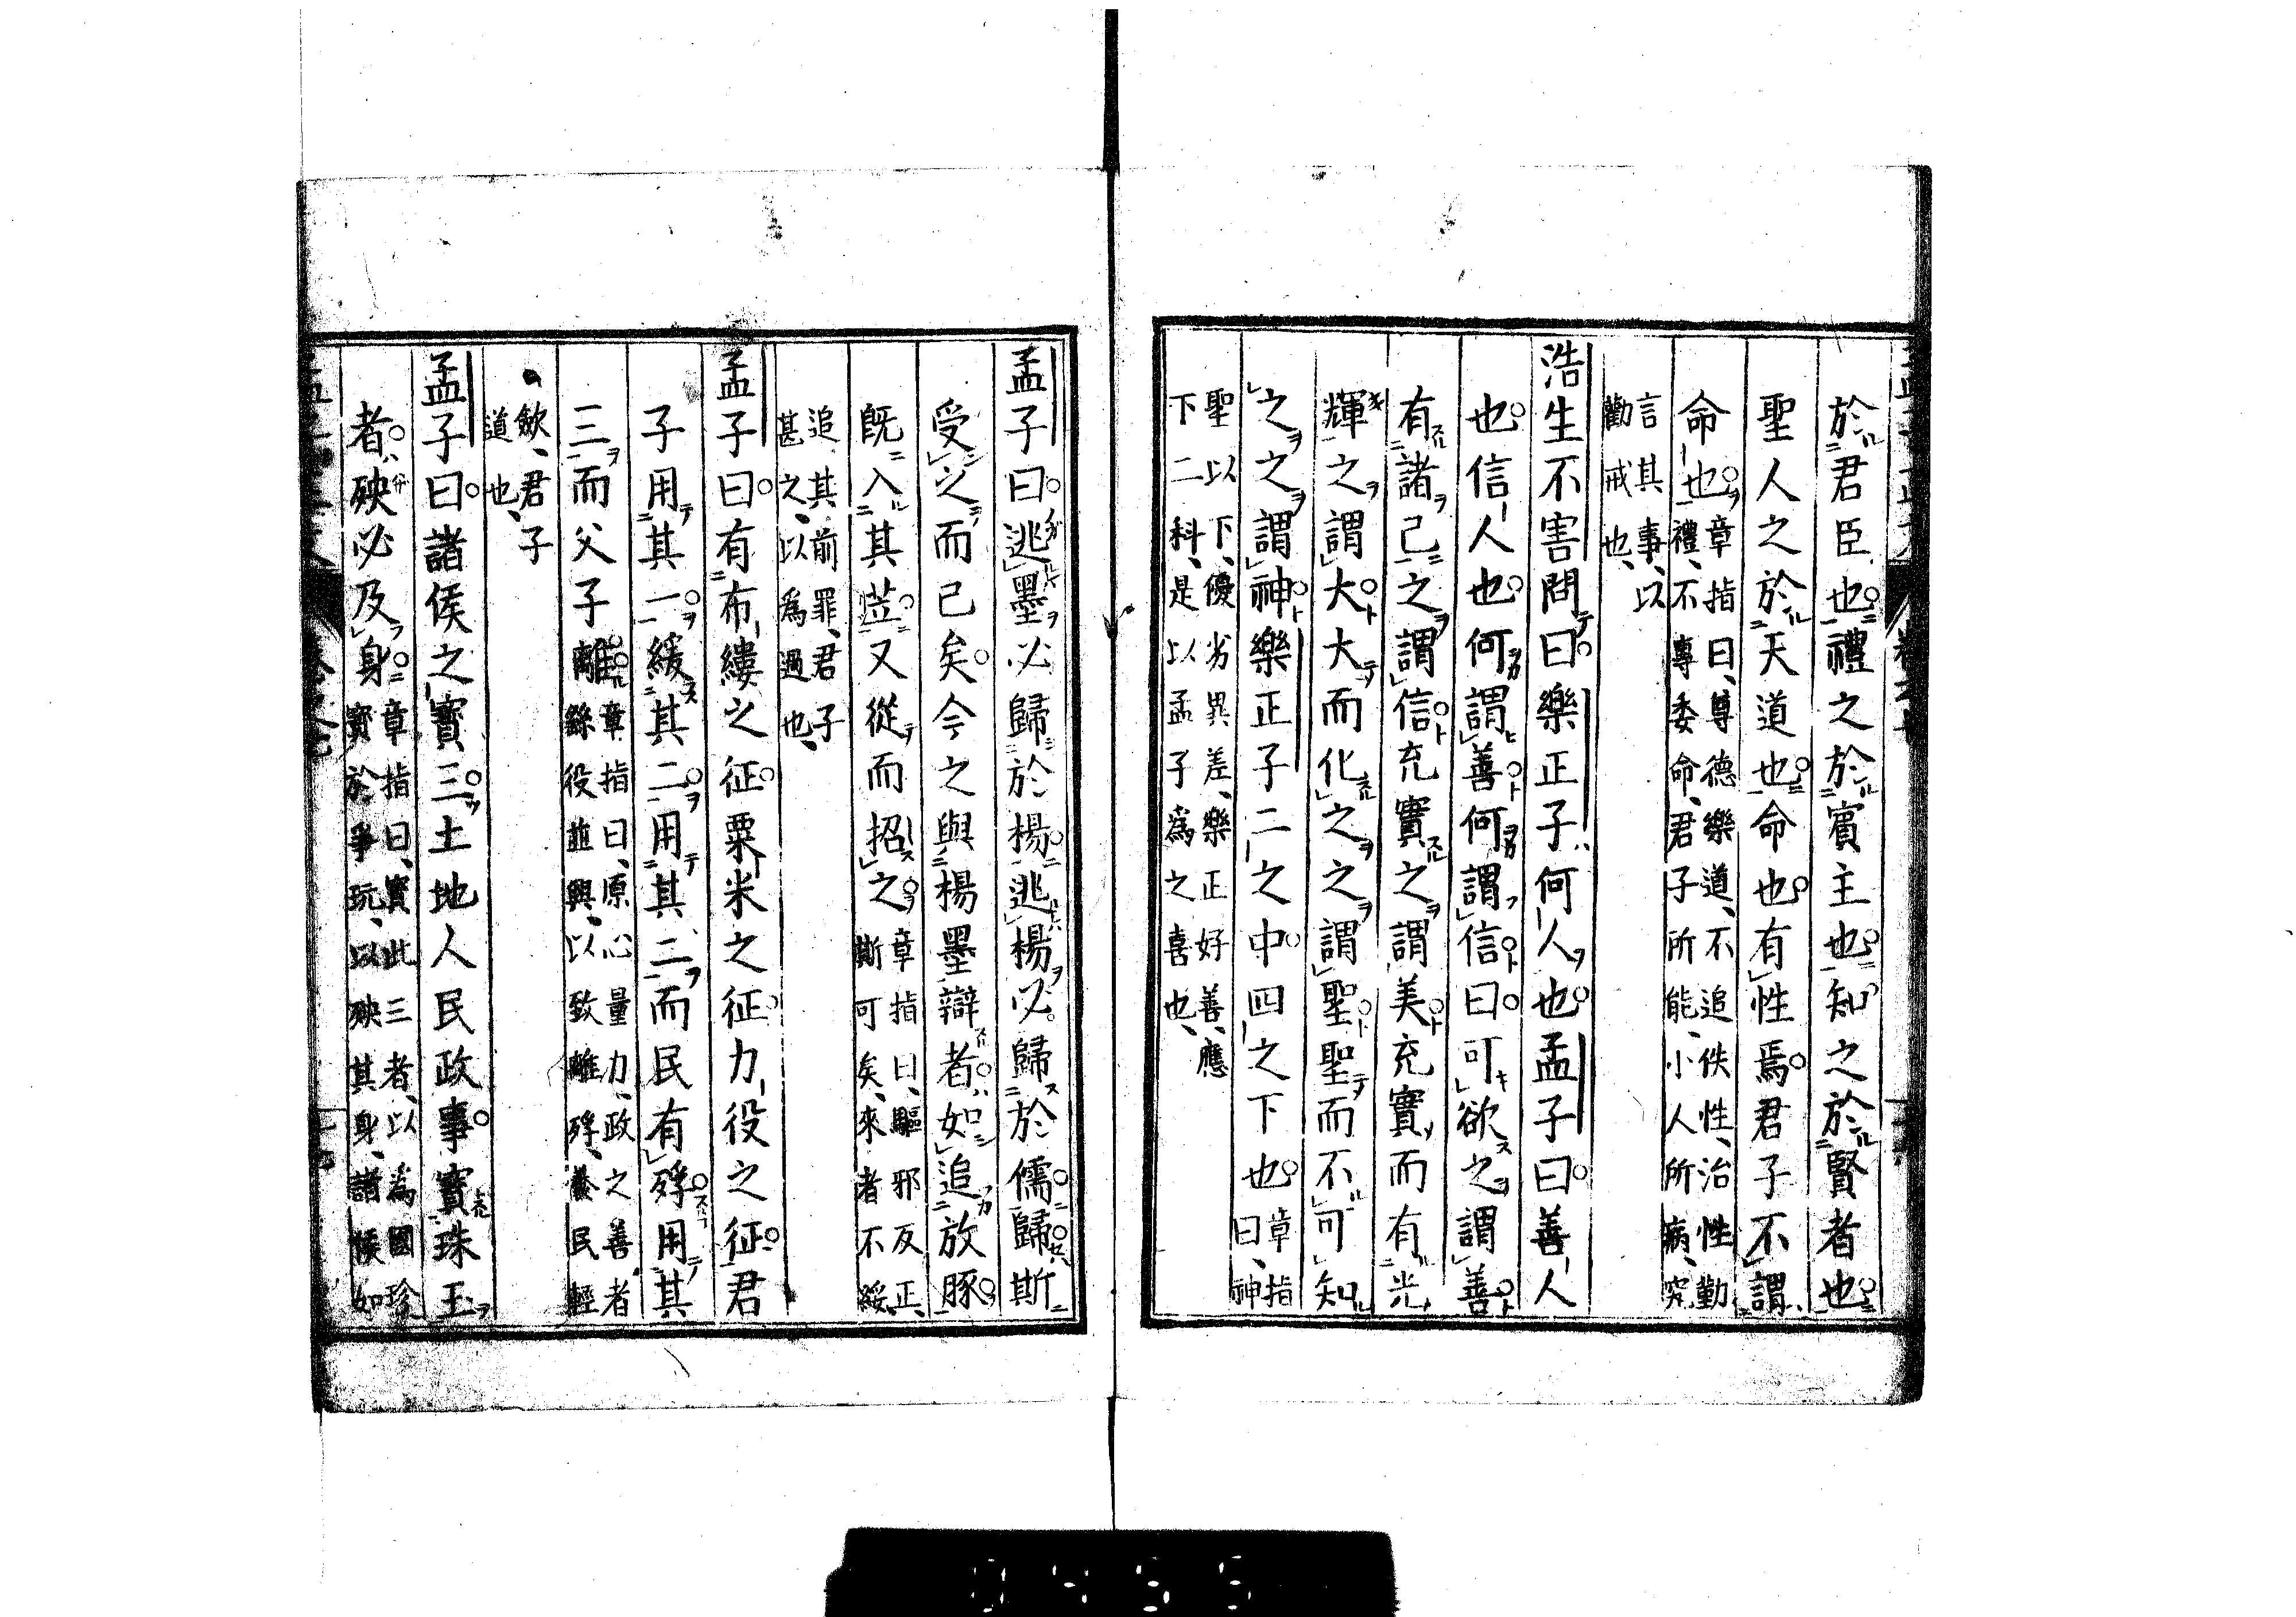 於君臣也禮之於賓主也知之於賢者也
聖人之於天道也命也有性焉君子不謂
命也章指曰、尊德樂道、不追佚性、治性勤
禮、不專委命、君子所能、小人所病、究
言其事、以
勸戒也、
浩生不害問曰樂正子何人也孟子曰善人
也信人也何謂善何謂信曰可欲之謂善
有諸己之謂信充實之謂美充實而有光
輝之謂大大而化之之謂聖聖而不可知
之之謂神樂正子二之中四之下也章指
曰、神
聖以下、優劣異差、樂正好善、應
下二科、是以孟子爲之喜也、
孟子曰逃墨必歸於楊逃楊必歸於儒歸斯
受之而已矣今之與楊墨辯者如追放豚
既入其苙又從而招之章指曰、驅邪反正、
斯可矣、來者不綏、
追其前罪、君子
甚之、以爲過也、
孟子曰有布縷之征粟米之征力役之征君
子用其一緩其二用其二而民有殍用其
三而父子離章指曰、原心量力、政之善者
繇役並興、以致離殍、養民輕
斂、君子
道也、
孟子曰諸侯之寶三土地人民政事寶珠玉
者殃必及身章指曰、寶此三者、以爲國珍
寶於爭玩、以殃其身、諸侯如